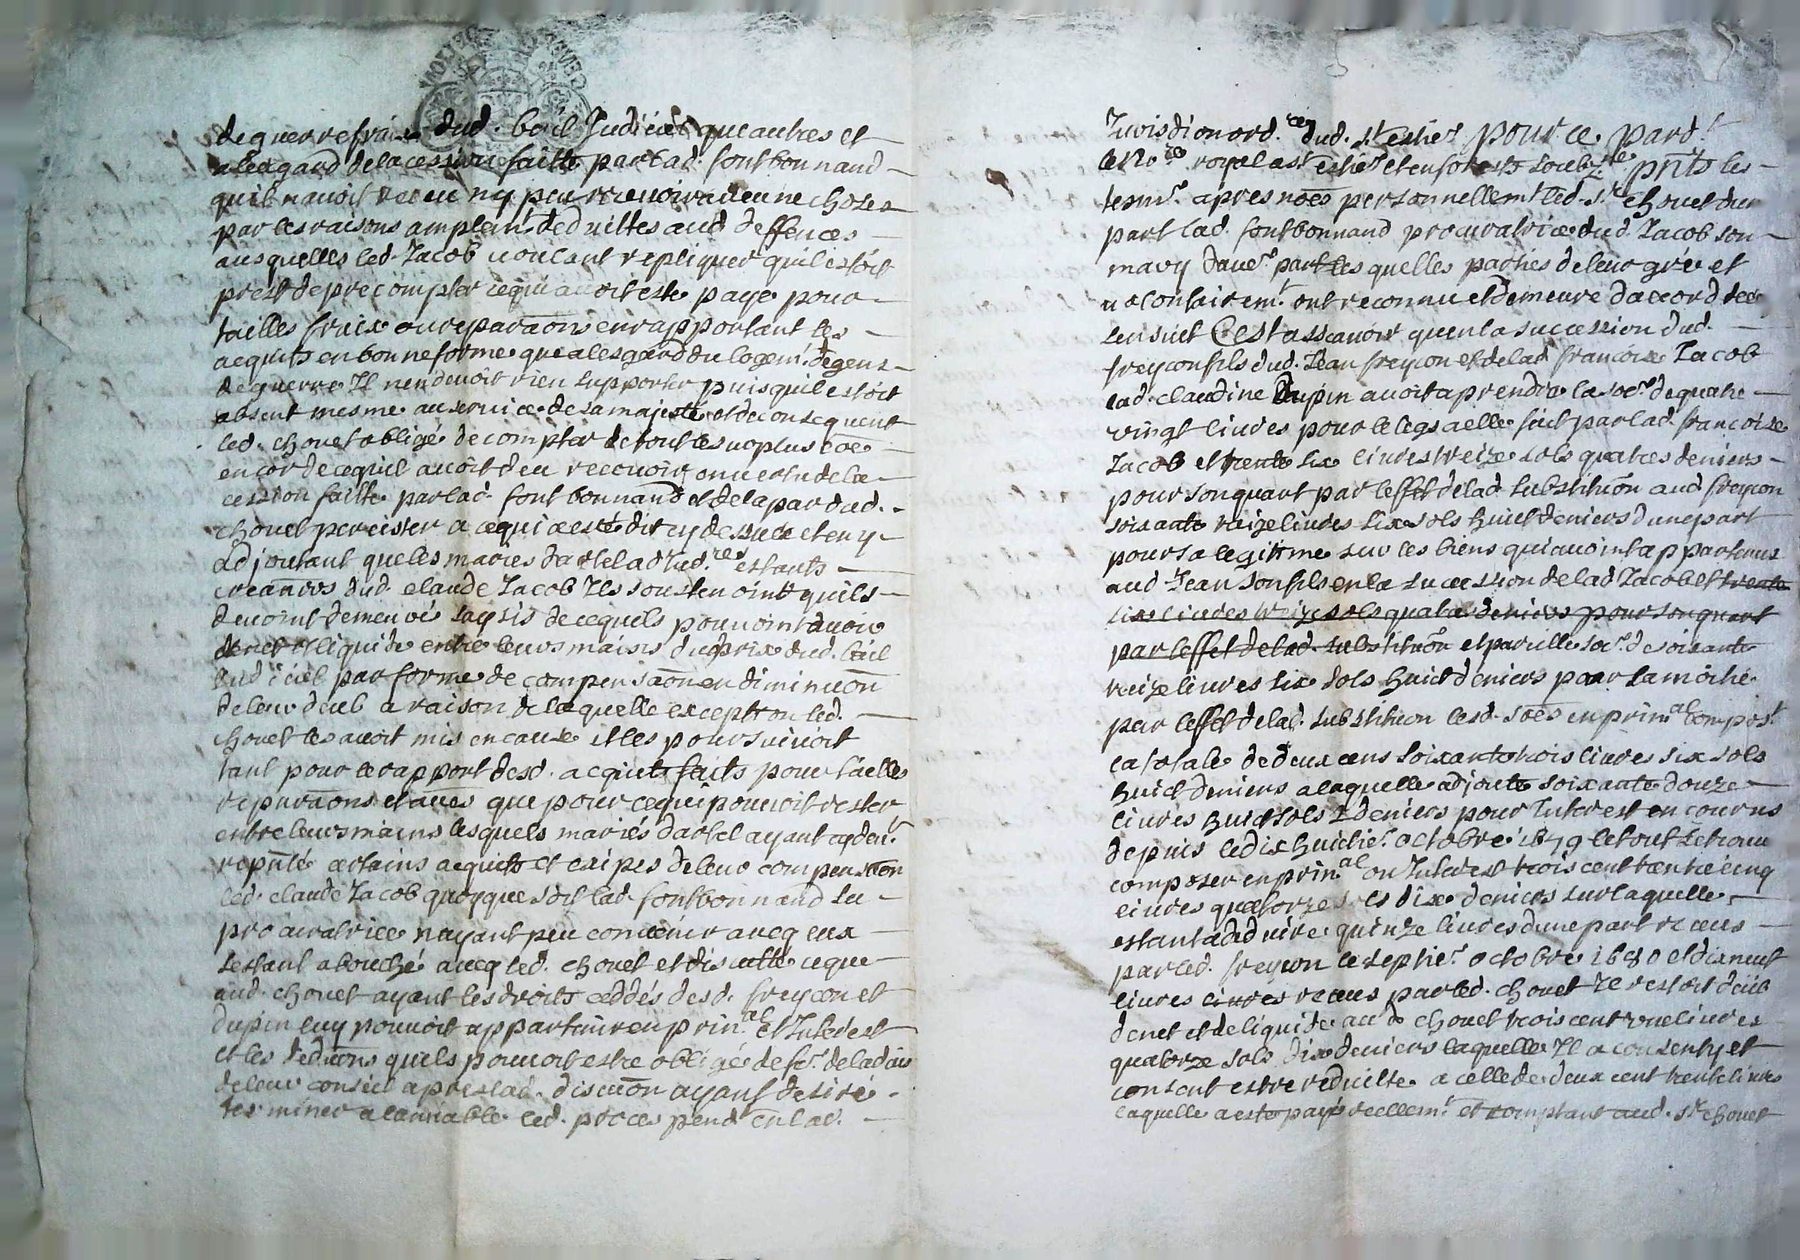 de guerre frais dud. bail Judiciel que autres et
a lesgard de la cession faitte par lad. fontbonnand
quil navoit receu ny peu recevoir aucune choses
par les raisons amplemt. deduittes aud deffences
ausquelles led. Jacob voulant repliquer quil estoit
prest de precompter ce qui avoit este paye pour
tailles fraix ou reparaons en rapportant les
acquits en bonne forme que a lesgard du logemt. de gens
de guerre Il nen devoit rien supporter puis quil estoit
absent mesme au service de sa majesté et de consequent
led. chouet obligé de compter de tout les
encor de ce quil avoit deu recevoir en vertu de la
cession faitte par lad. fontbonnand et de la par dud.
chouet perсister a ce qui a esté dit cy dessus et en y
adjoutant que les maries dartel ad. estants
creanciers dud. claude Jacob Ils soustenoint quils
devoint demeurer saysis de ce quils pouvoint avoir
de net et liquide entre leurs mains du prix dud. bail
Judiciel par forme de compensaon en diminuon
de leur deub a raison de laquelle exception led.
chouet les avoit mis en cause et les poursuivoit
tant pour le rapport desd. acquits faits pour tailles
reparaons et autres que pour ce qui pouvoit rester
entre leurs mains lesquels mariés dartel ayant cy devt.
certains acquits et exipes de leur compensaon
led. claude Jacob quoyque soit lad. fontbonnand sa
procuratrice nayant peu convenir avecq eux
sestant abouché avecq led. chouet et discutté ce que
aud. chouet ayant les droits ceddés desd. freycon et
dupin luy pouvoit appartenir en prinal et Interest
et les deduons quels pouvoit estre obligée de fe.
de leur conseil apres lad. discuon ayant desiré
terminer a lamiable led. proces pend. en lad.
Jurisdion ordre. dud. st. estie. pour ce pard.
le No.re royal a st estie. et en forests soubze. prnts les
tesmr. apres noes personnellemt. led. sr. chouet dun
part lad. fontbonnand procuratrice dud. Jacob son
mary dautre part lesquelles parties de leur gre et
volontairemt. ont reconnu et demeure daccord de ce
sensuit Cest assavoir quen la succession dud.
freycon fils dud. Jean freycon et de lad francoise Jacob
lad. claudine dupin avoit a prendre la soe. de quatre
vingt livres pour le legs a elle fait par lad. francoize
Jacob et trente six livres treize sols quatres deniers
pour son quart par leffet de lad. substituon aud freycon
soixante treize livres six sols huict deniers dune part
pour sa legitime sur les biens qui avoint appartenus
aud. Jean son fils en la succession de lad Jacob et trente
six livres treize sols quatre deniers pour son quart
par leffet de lad. substituon et pareille soe. de soixante
treize livres six sols huict deniers pour sa moitié
par leffet de lad. substituon lesd. soes en prinal compost.
la totale de deux cens soixante trois livres six sols
huict deniers a laquelle adjouté soixante douze
livres huict sols 2 deniers pour Interest en courus
depuis le dix huictie. octobre 1679 le tout se trouve
composer en prinal ou Interest trois cent trente cinq
livres quatorze sols dix deniers sur laquelle
estant a deduire quinze livres dune part receus
par led. freycon le septie. octobre 1680 et dix neuf
livres livres receus par led. chouet Il restoit deub
de net et de liquide au d. chouet trois cent une livres
quatorze sols dix deniers laquelle Il a consenty et
consent estre reduitte a celle de deux cent trente livres
laquelle a este payé reellemt. et comptant aud. sr. chouet